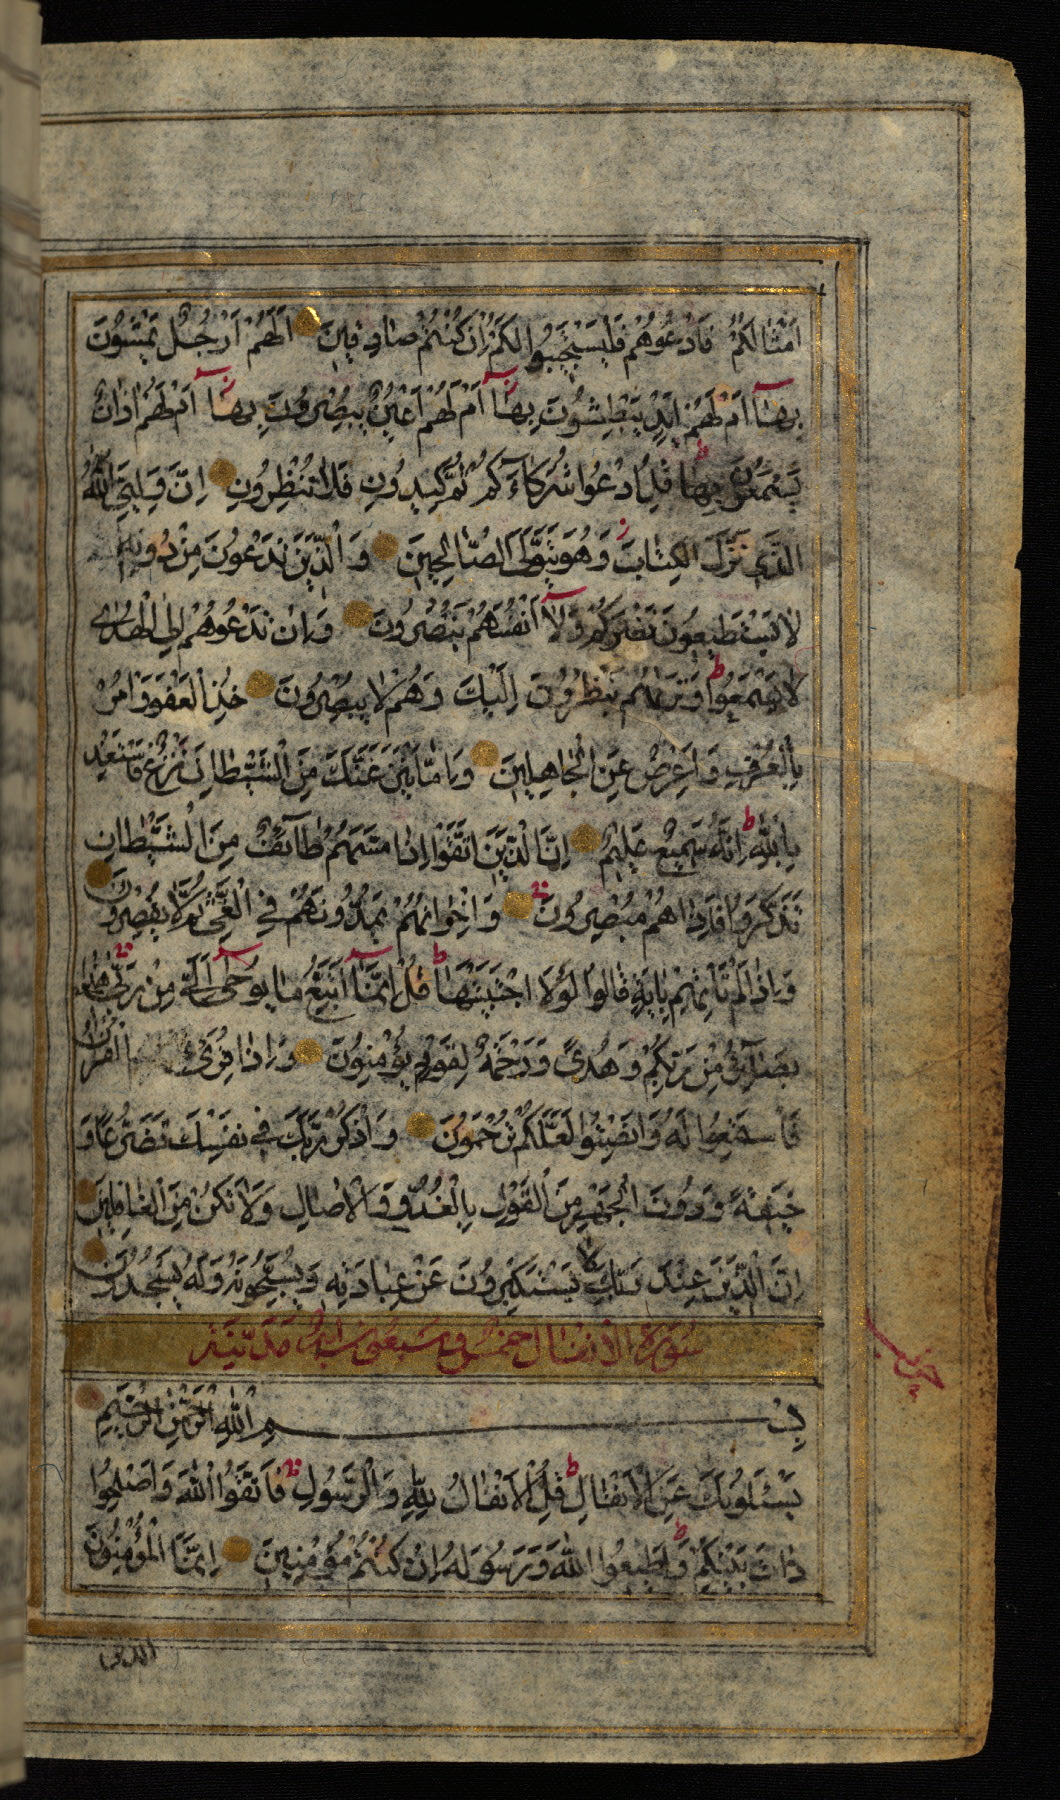 اَمْثٰالُكُمْ فَادْعُوهُمْ فَلْيَسْتَجٖيبُوا لَكُمْ اِنْ كُنْتُمْ صٰادِقٖينَ اَلَهُمْ اَرْجُلٌ يَمْشُونَ
بِهٰٓا اَمْ لَهُمْ اَيْدٍ يَبْطِشُونَ بِهٰٓا اَمْ لَهُمْ اَعْيُنٌ يُبْصِرُونَ بِهٰٓا اَمْ لَهُمْ اٰذٰانٌ
يَسْمَعُونَ بِهٰا قُلِ ادْعُوا شُرَكٰاءَكُمْ ثُمَّ كٖيدُونِ فَلٰا تُنْظِرُونِ اِنَّ وَلِيِّيَ اللّٰهُ
الَّذٖي نَزَّلَ الْكِتٰابَ وَهُوَ يَتَوَلَّى الصّٰالِحٖينَ وَالَّذٖينَ تَدْعُونَ مِنْ دُونِهٖ
لٰا يَسْتَطٖيعُونَ نَصْرَكُمْ وَلٰٓا اَنْفُسَهُمْ يَنْصُرُونَ وَاِنْ تَدْعُوهُمْ اِلَى الْهُدٰى
لٰا يَسْمَعُوا وَتَرٰيهُمْ يَنْظُرُونَ اِلَيْكَ وَهُمْ لٰا يُبْصِرُونَ خُذِ الْعَفْوَ وَاْمُرْ
بِالْعُرْفِ وَاَعْرِضْ عَنِ الْجٰاهِلٖينَ وَاِمّٰا يَنْزَغَنَّكَ مِنَ الشَّيْطٰانِ نَزْغٌ فَاسْتَعِذْ
بِاللّٰهِ اِنَّهُ سَمٖيعٌ عَلٖيمٌ اِنَّ الَّذٖينَ اتَّقَوْا اِذٰا مَسَّهُمْ طٰٓائِفٌ مِنَ الشَّيْطٰانِ
تَذَكَّرُوا فَاِذٰا هُمْ مُبْصِرُونَ وَاِخْوٰانُهُمْ يَمُدُّونَهُمْ فِي الْغَيِّ ثُمَّ لٰا يُقْصِرُونَ
وَاِذٰا لَمْ تَاْتِهِمْ بِاٰيَةٍ قٰالُوا لَوْلَا اجْتَبَيْتَهٰا قُلْ اِنَّمٰٓا اَتَّبِعُ مٰا يُوحٰٓى اِلَيَّ مِنْ رَبّٖي هٰذٰا
بَصٰٓائِرُ مِنْ رَبِّكُمْ وَهُدًى وَرَحْمَةٌ لِقَوْمٍ يُؤْمِنُونَ وَاِذٰا قُرِئَ الْقُرْاٰنُ
فَاسْتَمِعُوا لَهُ وَاَنْصِتُوا لَعَلَّكُمْ تُرْحَمُونَ وَاذْكُرْ رَبَّكَ فٖي نَفْسِكَ تَضَرُّعًا وَ
خٖيفَةً وَدُونَ الْجَهْرِ مِنَ الْقَوْلِ بِالْغُدُوِّ وَالْاٰصٰالِ وَلٰا تَكُنْ مِنَ الْغٰافِلٖينَ
اِنَّ الَّذٖينَ عِنْدَ رَبِّكَ لٰا يَسْتَكْبِرُونَ عَنْ عِبٰادَتِهٖ وَيُسَبِّحُونَهُ وَلَهُ يَسْجُدُونَ
سُورَةُ الْاَنْفٰال خمس و سبعون اٰية مَدَنِيَّة
بِسْمِ اللّٰهِ الرَّحْمٰنِ الرَّحٖيمِ
يَسْئَلُونَكَ عَنِ الْاَنْفٰالِ قُلِ الْاَنْفٰالُ لِلّٰهِ وَالرَّسُولِ فَاتَّقُوا اللّٰهَ وَاَصْلِحُوا
ذٰاتَ بَيْنِكُمْ وَاَطٖيعُوا اللّٰهَ وَرَسُولَهُ اِنْ كُنْتُمْ مُؤْمِنٖينَ اِنَّمَا الْمُؤْمِنُونَ
الذين